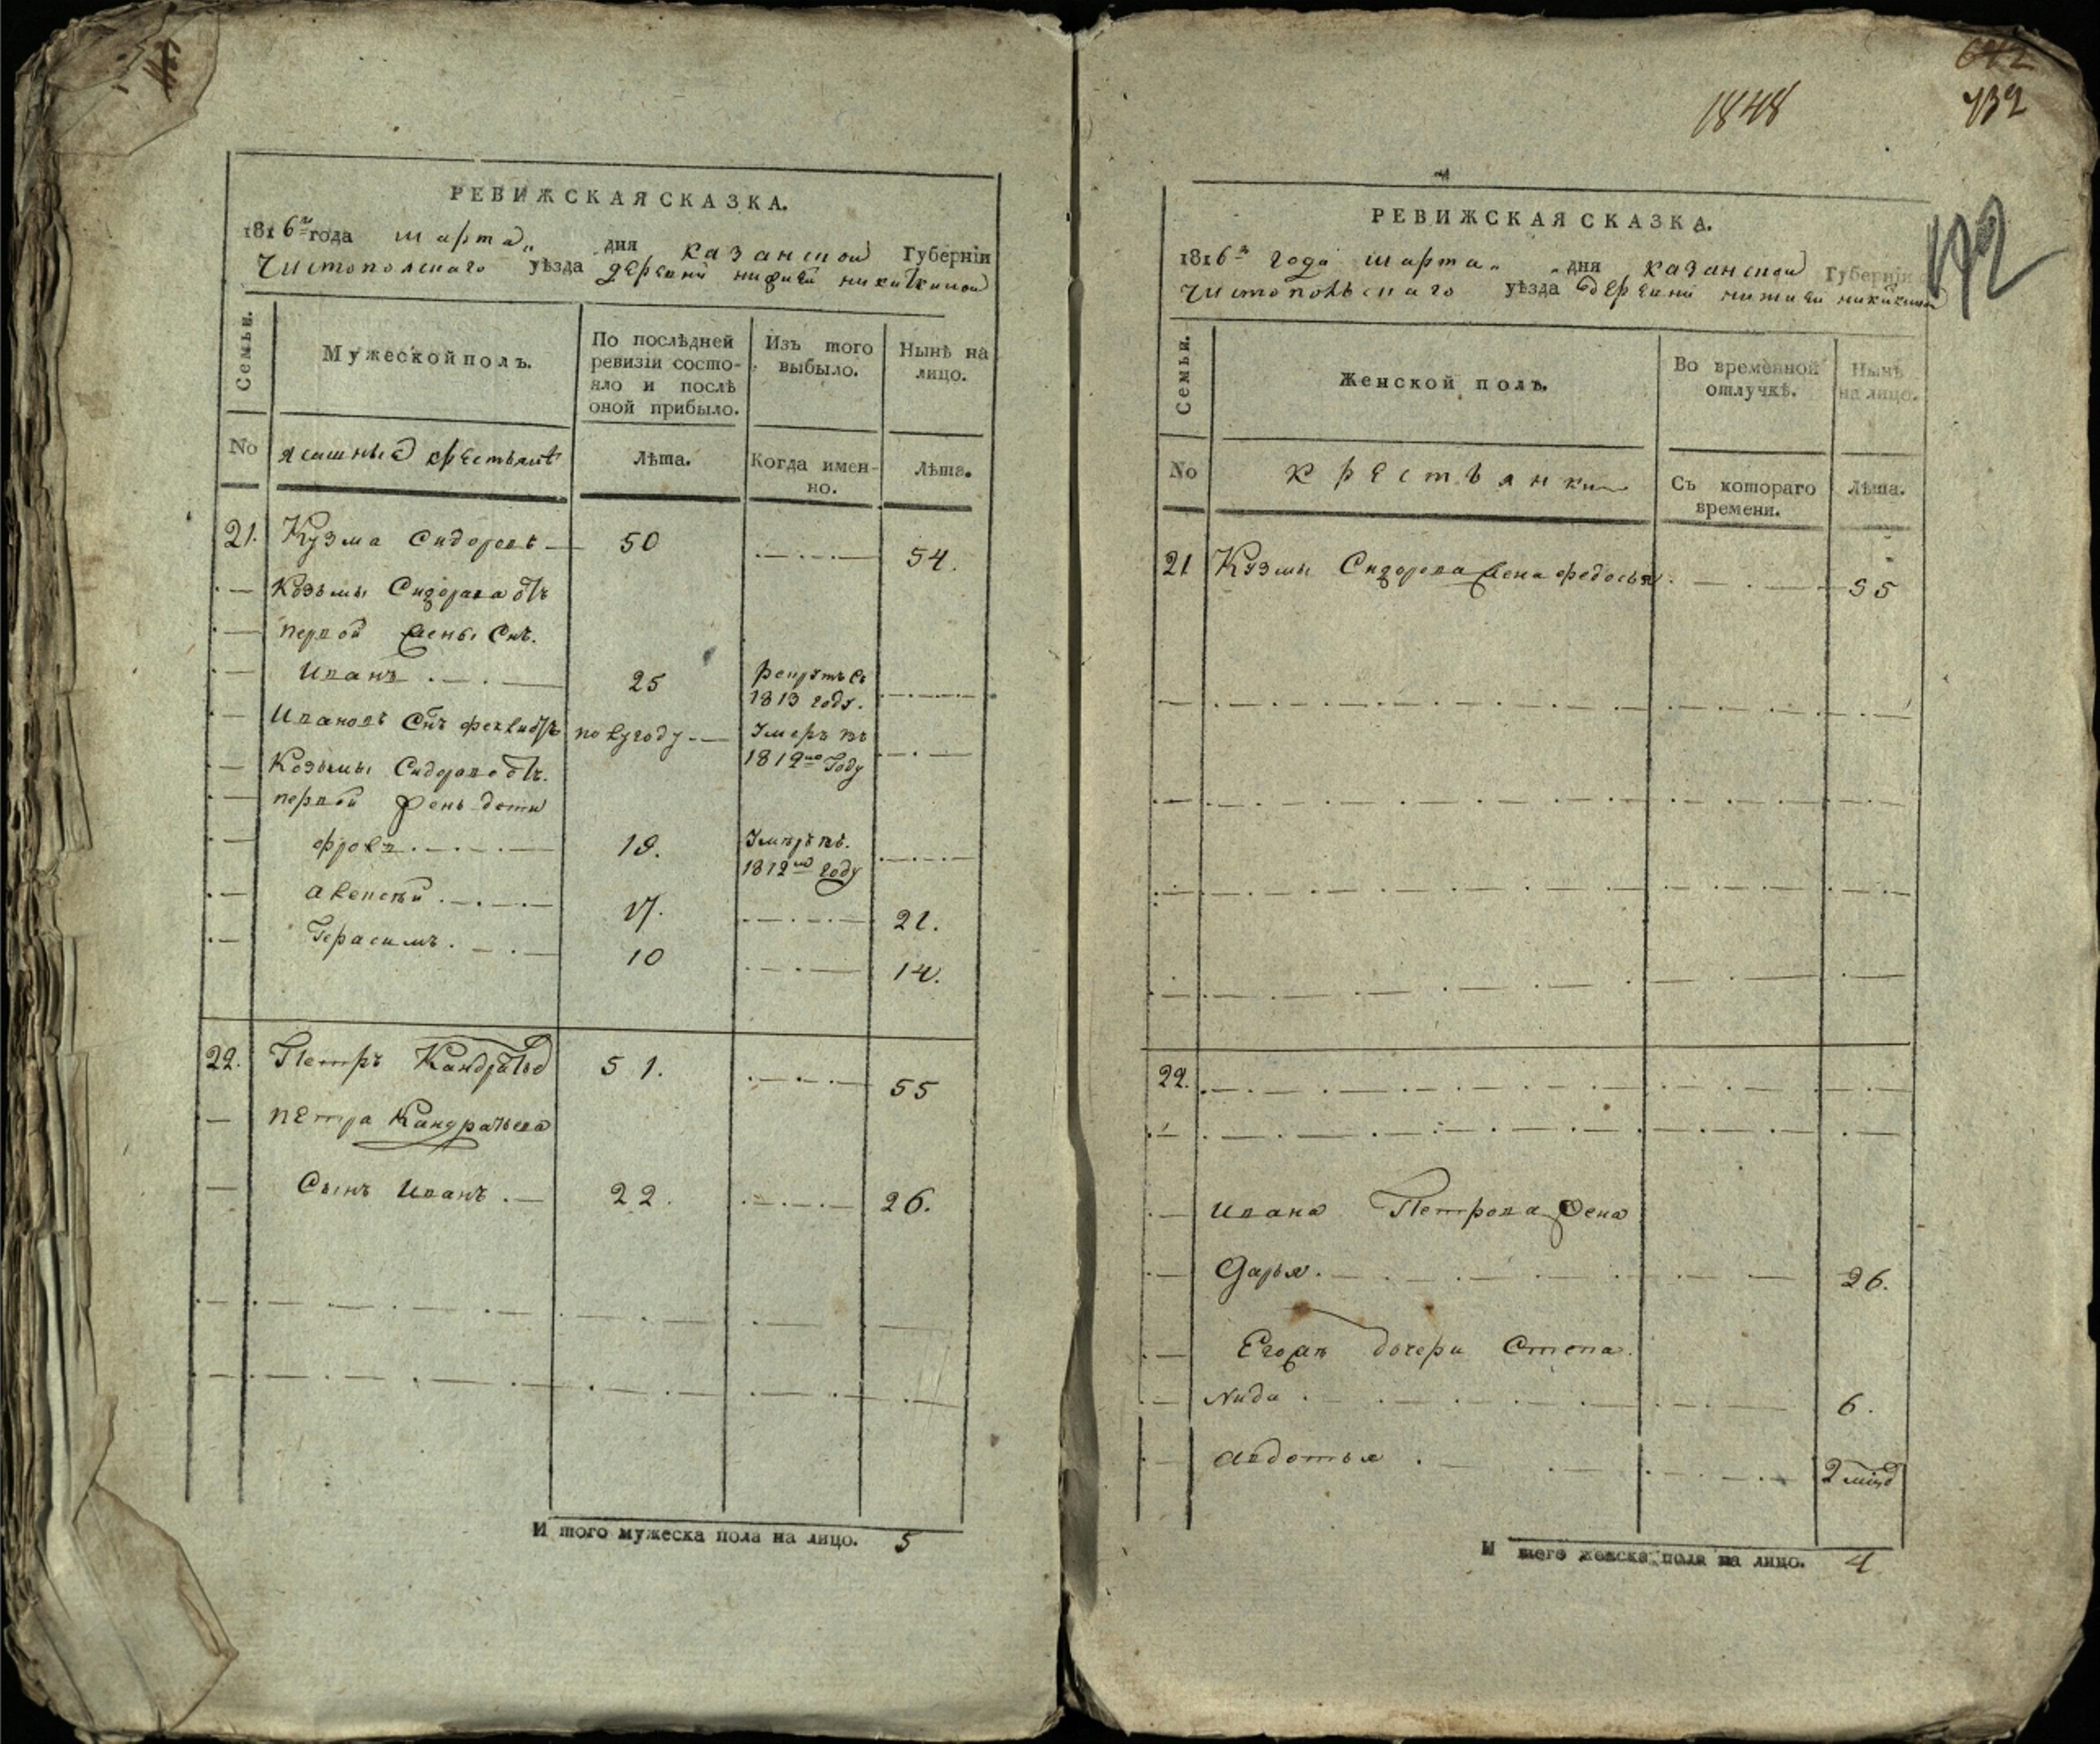 642
1848
432
192
РЕВИЖСКАЯ СКАЗКА.
1816го года марта дня казанской Губерніи
Чистополскаго уѣзда деревни нижней никиткиной
Семьи.
Мужеской полъ.
По послѣдней ревизіи состояло и послѣ оной прибыло.
Изъ того выбыло.
Нынѣ на лицо.
No
ясашные крестьянѣ
Лѣта.
Когда именно.
Лѣта.
21. Кузма Сидоровъ 50 54.
Козьмы Сидорова отъ
первой жены Снъ.
Иванъ 25 рекрутъ въ 1813 году.
Ивановъ Снъ по Вугоду Умеръ въ 1812мъ Году
Козьмы Сидорова отъ.
первой жены дети
Фролъ 19. Умеръ въ. 1812мъ году
Алексѣй 17. 21.
Герасимъ 10 14.
22. Петръ Кандратьев 51. 55
петра Кандратьева
Сынъ Иванъ 22. 26.
И того мужеска пола на лицо. 5
РЕВИЖСКАЯ СКАЗКА.
1816го года марта дня казанской Губерніи
Чистопольскаго уѣзда деревни нижней никиткиной
Семьи.
Женской полъ.
Во временной отлучкѣ.
Нынѣ на лицо.
No
крестьянки
Съ котораго времени.
Лѣта.
21 Кузмы Сидорова жена федосья 55
22.
Ивана Петрова жена
Дарья. 26.
Его дочери Степа.
Нида 6.
Авдотья 2 мцд
И того женска пола на лицо. 4